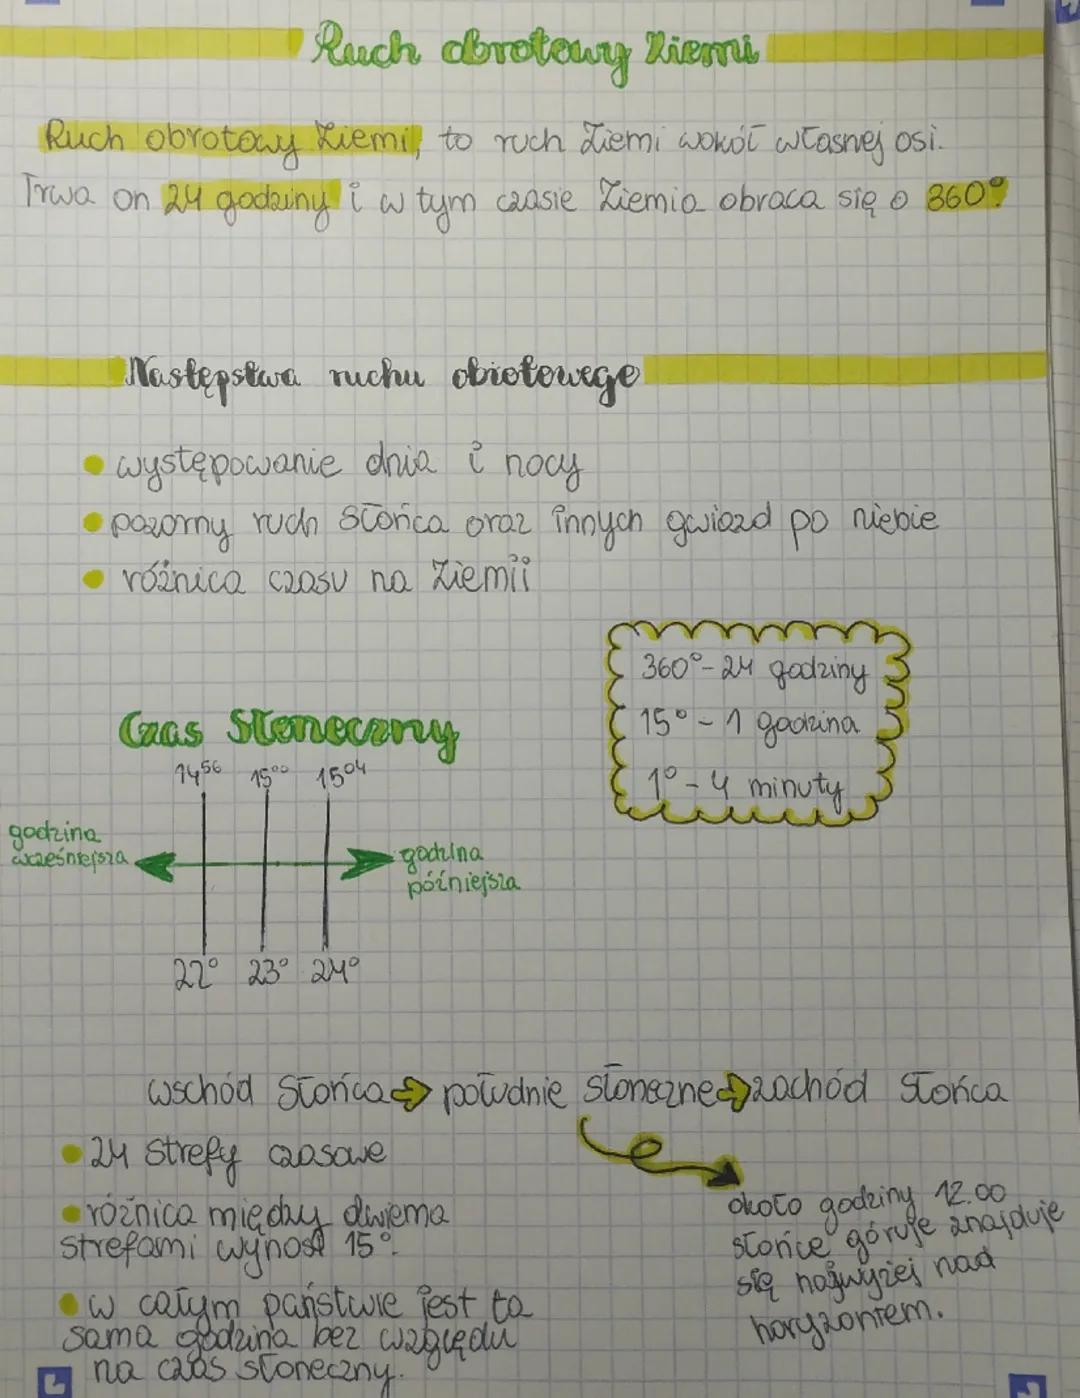 Ruch obrotowy Ziemi
Ruch obrotowy Ziemi, to ruch Ziemi wokół własnej osi.
Trwa on 24 godziny i w tym czasie Ziemia obraca się o 360°.
Następstwa ruchu obrotowego
• występowanie dnia i nocy
• pozorny ruch Słońca oraz innych gwiazd po niebie
• różnica czasu na Ziemii
360° - 24 godziny
15° - 1 godzina
1° - 4 minuty
Czas Słoneczny
14⁵⁶ 15⁰⁰ 15⁰⁴
godzina
wcześniejsza
godzina
późniejsza
22° 23° 24°
wschód Słońca ⇒ południe słoneczne ⇒ zachód Słońca
• 24 strefy czasowe
• różnica między dwiema
strefami wynosi 15°.
• w całym państwie jest ta
sama godzina bez względu
na czas słoneczny.
około godziny 12.00
słońce góruje znajduje
się najwyżej nad
horyzontem.